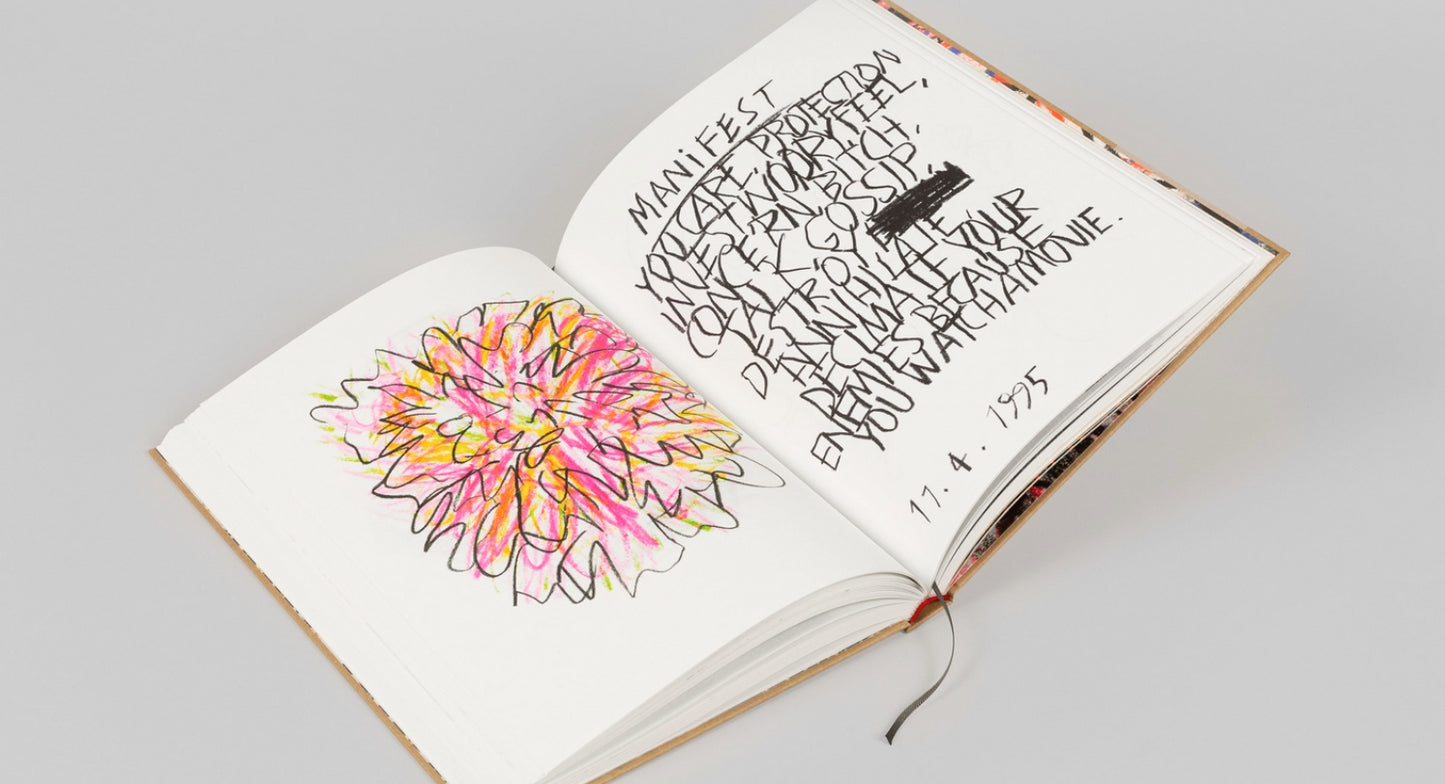 MANiFEST
YOU CARE. PROTECTION
INVEST WOORY FEEL,
CONCERN. BITCH.
ATACK. GOSSIP.
DESTROY.
ANNIHILATE
DECIMATE YOUR
ENEMIES BECAUSE
YOU WATCH A MOVIE.
11.4.1995